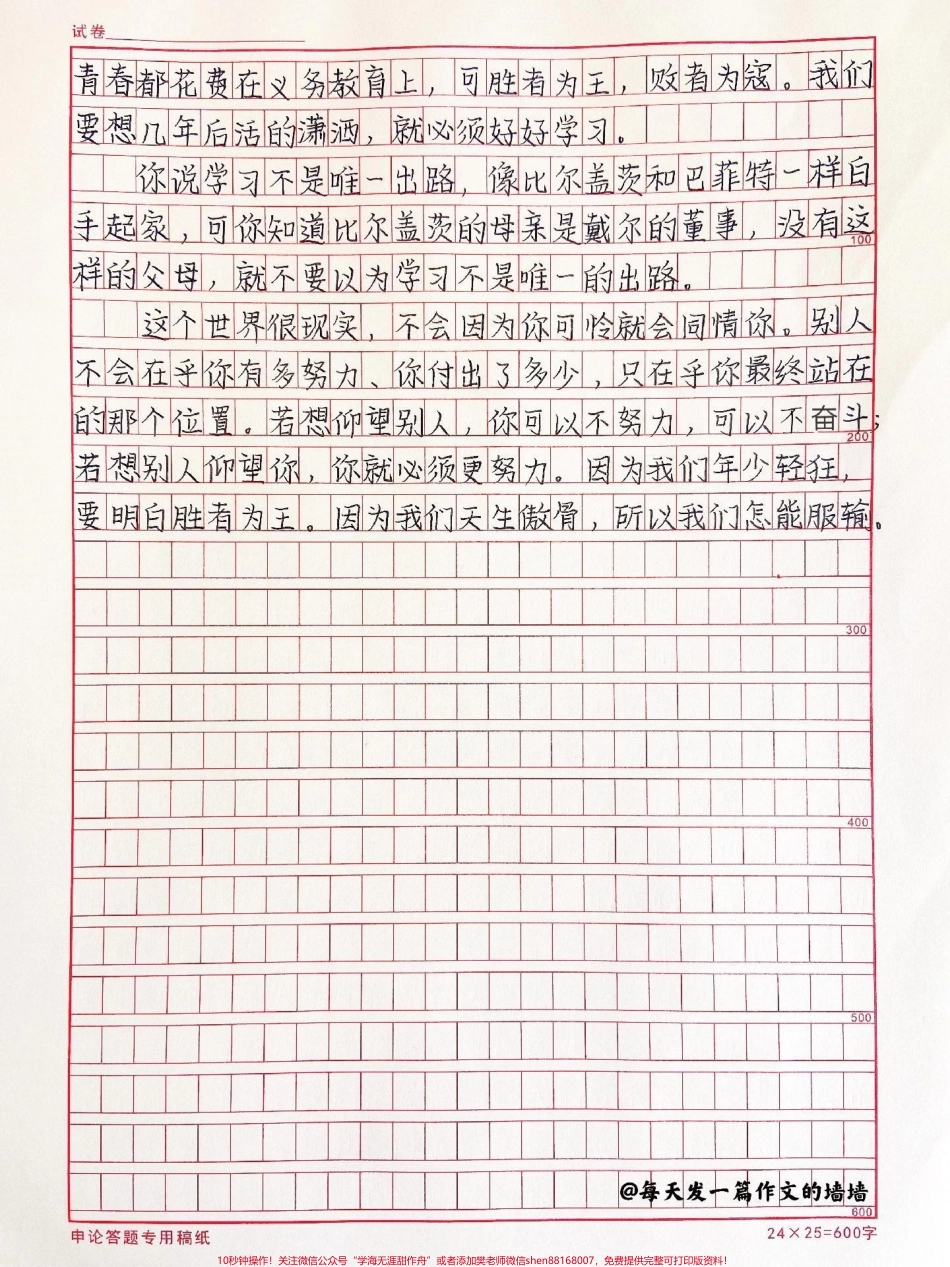 试卷
青春都花费在义务教育上，可胜者为王，败者为寇。我们
要想几年后活的潇洒，就必须好好学习。
你说学习不是唯一出路，像比尔盖茨和巴菲特一样白
手起家，可你知道比尔盖茨的母亲是戴尔的董事，没有这
100
样的父母，就不要以为学习不是唯一的出路。
这个世界很现实，不会因为你可怜就会同情你。别人
不会在乎你有多努力、你付出了多少，只在乎你最终站在
的那个位置。若想仰望别人，你可以不努力，可以不奋斗；
200
若想别人仰望你，你就必须更努力。因为我们年少轻狂，
要明白胜者为王。因为我们天生傲骨，所以我们怎能服输。
300
400
500
@每天发一篇作文的墙墙
600
申论答题专用稿纸 24×25=600字
10秒钟操作！关注微信公众号“学海无涯甜作舟”或者添加樊老师微信shen88168007，免费提供完整可打印版资料！